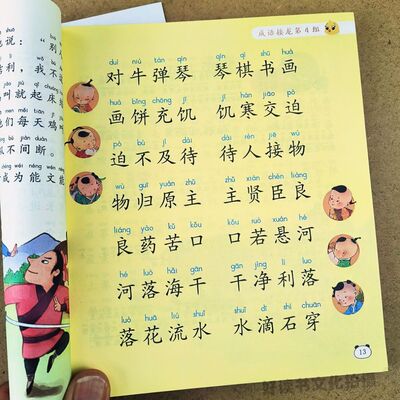 说：“别
利，我不
jiào jiù qǐ chuáng
叫就起床
men měi tiān jī
们每天鸡
bù jiàn duàn
不间断。
chéng wéi néng wén néng
成为能文能
成语接龙第4组
duì niú tán qín qín qí shū huà
对牛弹琴 琴棋书画
huà bǐng chōng jī jī hán jiāo pò
画饼充饥 饥寒交迫
pò bù jí dài dài rén jiē wù
迫不及待 待人接物
wù guī yuán zhǔ zhǔ xián chén liáng
物归原主 主贤臣良
liáng yào kǔ kǒu kǒu ruò xuán hé
良药苦口 口若悬河
hé luò hǎi gān gān jìng lì luo
河落海干 干净利落
luò huā liú shuǐ shuǐ dī shí chuān
落花流水 水滴石穿
13